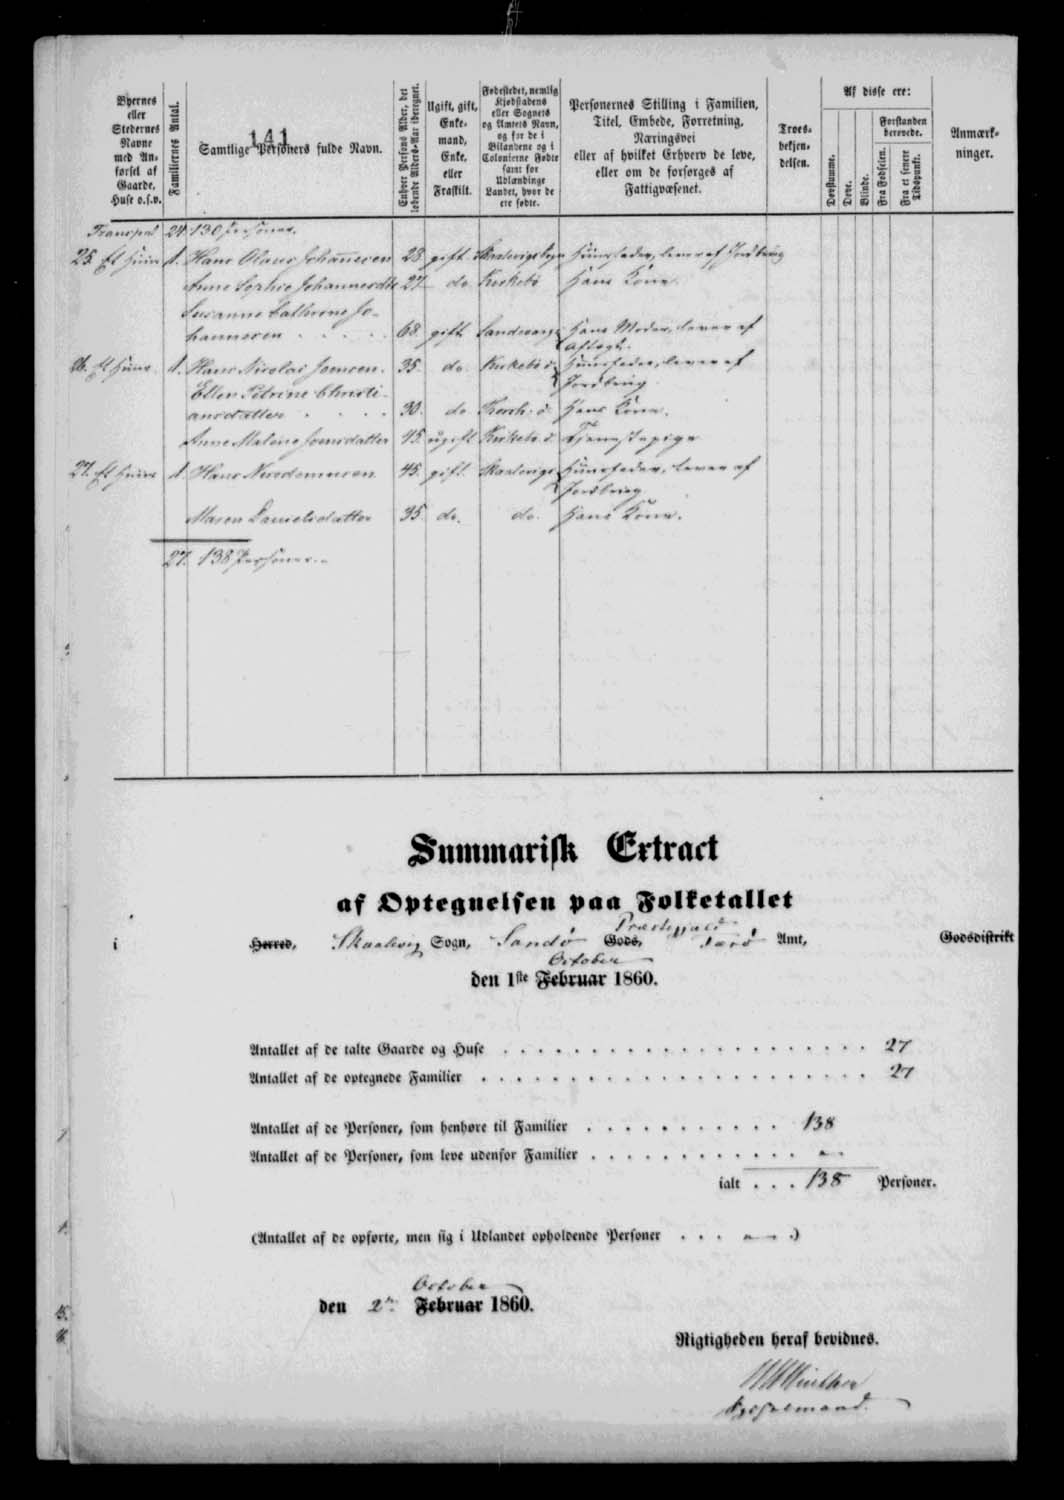 Byernes
eller
Stedernes
Navne
med An-
førsel af
Gaarde,
Huse o.s.v.
Familiernes Antal.
141
Samtlige Personers fulde Navn.
Enhver Persons Alder, det
løbende Alders-Aar iberegnet.
Ugift, gift,
Enke-
mand,
Enke,
eller
Fraskilt.
Fødestedet, nemlig
Kjøbstadens
eller Sognets
og Amtets Navn,
og for de i
Bilandene og i
Colonierne Fødte
samt for
Udlændinge
Landet, hvor de
ere fødte.
Personernes Stilling i Familien,
Titel, Embede, Forretning,
Næringsvei
eller af hvilket Erhverv de leve,
eller om de forsørges af
Fattigvæsenet.
Troes-
bekjen-
delsen.
Af disse ere:
Døvstumme.
Døve.
Blinde.
Forstanden
berøvede.
Fra Fødselen.
Fra et senere
Tidspunkt.
Anmærk-
ninger.
24 130 Personer.
25. Et Huus 1. Hans Olaus Johannesen 28. gift Huusfader, lever af Jordbrug
Anne Sophie Johannesdtr 27 do. Kirkebø Hans Kone.
Susanne Cathrine Jo-
hannesen 68. gift Hans Moder, lever af
Aftægt.
26. Et Huus 1. Hans Nicolai Joensen. 35. do. Kirkebø Huusfader, lever af
Jordbrug.
Ellen Petrine Christi-
ansdatter 30. do Hans Kone.
Anne Malene Joensdatter 45. ugift Tjenestepige
27. Et Huus 1. Hans 45. gift. Huusfader, lever af
Jordbrug.
Maren Danielsdatter 35. do. do. Hans Kone.
27. 138 Personer.
Summarisk Extract
af Optegnelsen paa Folketallet
Præstegjeld
i Herred, Skaalevig Sogn, Sandø Gods, Færø Amt, Godsdistrikt
October
den 1ste Februar 1860.
Antallet af de talte Gaarde og Huse 27
Antallet af de optegnede Familier 27
Antallet af de Personer, som henhøre til Familier 138
Antallet af de Personer, som leve udenfor Familier
ialt . . . 138 Personer.
(Antallet af de opførte, men sig i Udlandet opholdende Personer . . . )
October
den 2den Februar 1860.
Rigtigheden heraf bevidnes.
Winther